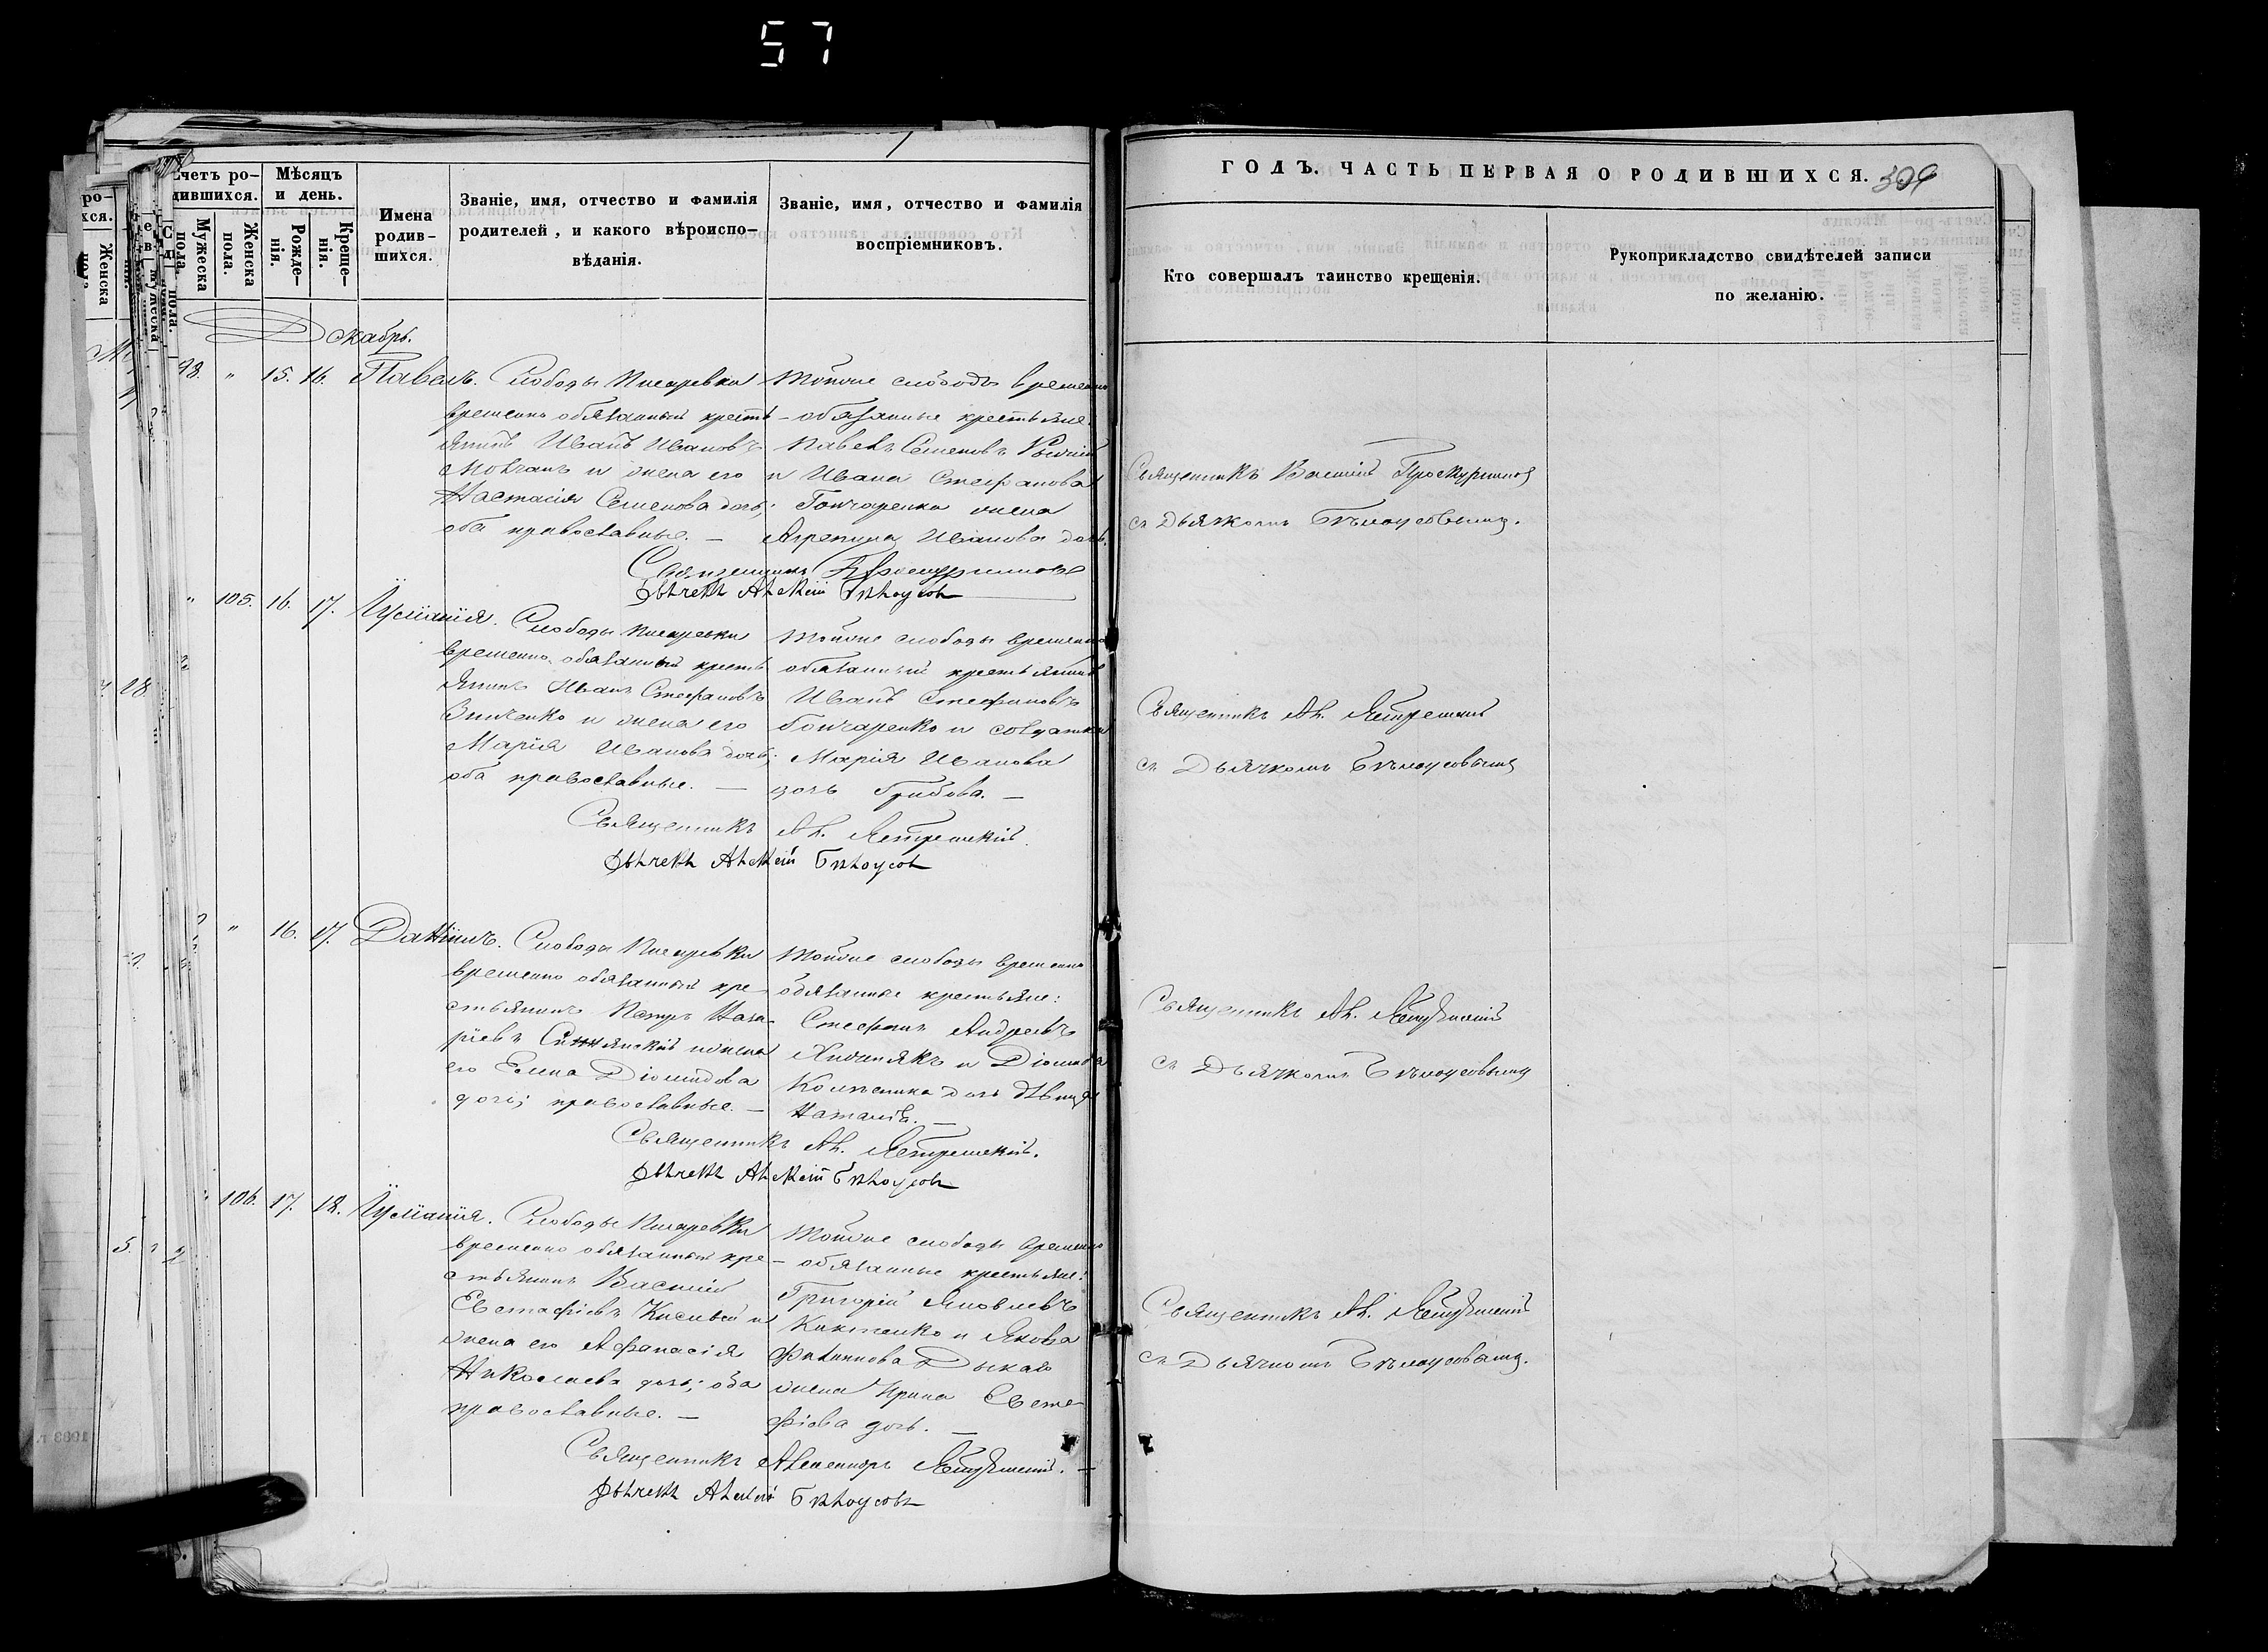 57
Счетъ ро-
дившихся.
Мужеска пола.
Женска пола.
Мѣсяцъ
и день.
Рожде-
нія.
Креще-
нія.
Имена
родив-
шихся.
Званіе, имя, отчество и фамилія
родителей, и какого вѣроиспо-
вѣданія.
Званіе, имя, отчество и фамилія
воспріемниковъ.
Декабрь.
98. " 15. 16. Павелъ.
Слободы Писаревки
временно обязанный кресть-
янинъ Иванъ Ивановъ
Мовчанъ и жена его
Настасія Семенова дочь;
оба православные. —
Тойже слободы временно
обязанные крестьяне
Павелъ Семеновъ
и Ивана Стефанова
Гончаренка жена
Агрепина Иванова дочь.
Священникъ В. Проскурниковъ
Дьячекъ Алексій Бѣлоусовъ
" 105. 16. 17. Іуліанія.
Слободы Писаревки
временно обязанный кресть
янинъ Иванъ Стефановъ
Зинченко и жена его
Марія Иванова дочь;
оба православные. —
Тойже слободы временно
обязанный крестьянинъ
Иванъ Стефановъ
Гончаренко и солдатка
Марія Иванова
дочь Грибова. —
Священникъ Ал. Ястремскій.
Дьячекъ Алексій Бѣлоусовъ
" 16. 17. Даніилъ.
Слободы Писаревки
временно обязанный кре-
стьянинъ Петръ Наза-
ріевъ и жена
его Елена Діомидова
дочь; православные. —
Тойже слободы временно
обязанные крестьяне:
Стефанъ Андреевъ
и Діомида
дочь дѣвица
Наталія. —
Священникъ Ал. Ястремскій.
Дьячекъ Алексій Бѣлоусовъ
" 106. 17. 18. Іуліанія.
Слободы Писаревки
временно обязанный кре-
стьянинъ Василій
Евстафіевъ Кислый и
жена его Афанасія
Николаева дочь; оба
православные. —
Тойже слободы временно
обязанные крестьяне:
Григорій Яковлевъ
и Якова
Филиппова Дыкаго
жена Ирина Евста-
фіева дочь. —
Священникъ Александръ Ястремскій. —
Дьячекъ Алексій Бѣлоусовъ
ГОДЪ. ЧАСТЬ ПЕРВАЯ О РОДИВШИХСЯ.
Кто совершалъ таинство крещенія.
Рукоприкладство свидѣтелей записи
по желанію.
Священникъ Василій Проскурниковъ
съ Дьячкомъ Бѣлоусовымъ.
Священникъ Ал. Ястремскій
съ Дьячкомъ Бѣлоусовымъ
Священникъ Ал. Ястремскій
съ Дьячкомъ Бѣлоусовымъ
Священникъ Ал. Ястремскій
съ Дьячкомъ Бѣлоусовымъ.